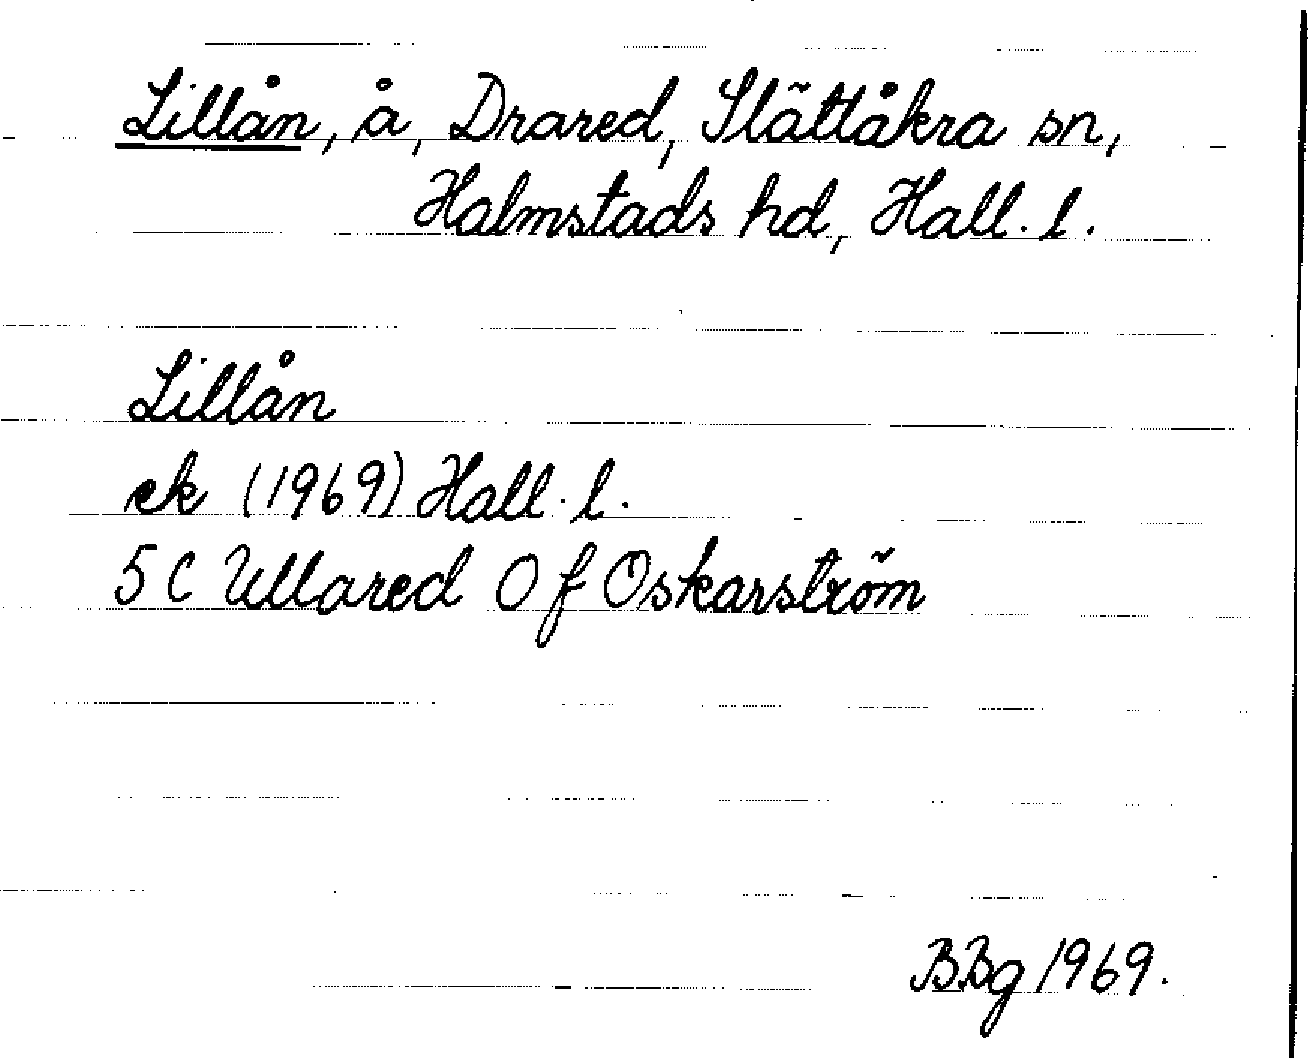 Lillån, å, Drared, Slättåkra sn,
Halmstads hd, Hall. l.
Lillån
ek (1969) Hall. l.
5 C Ullared 0 f Oskarström
BBg 1969.